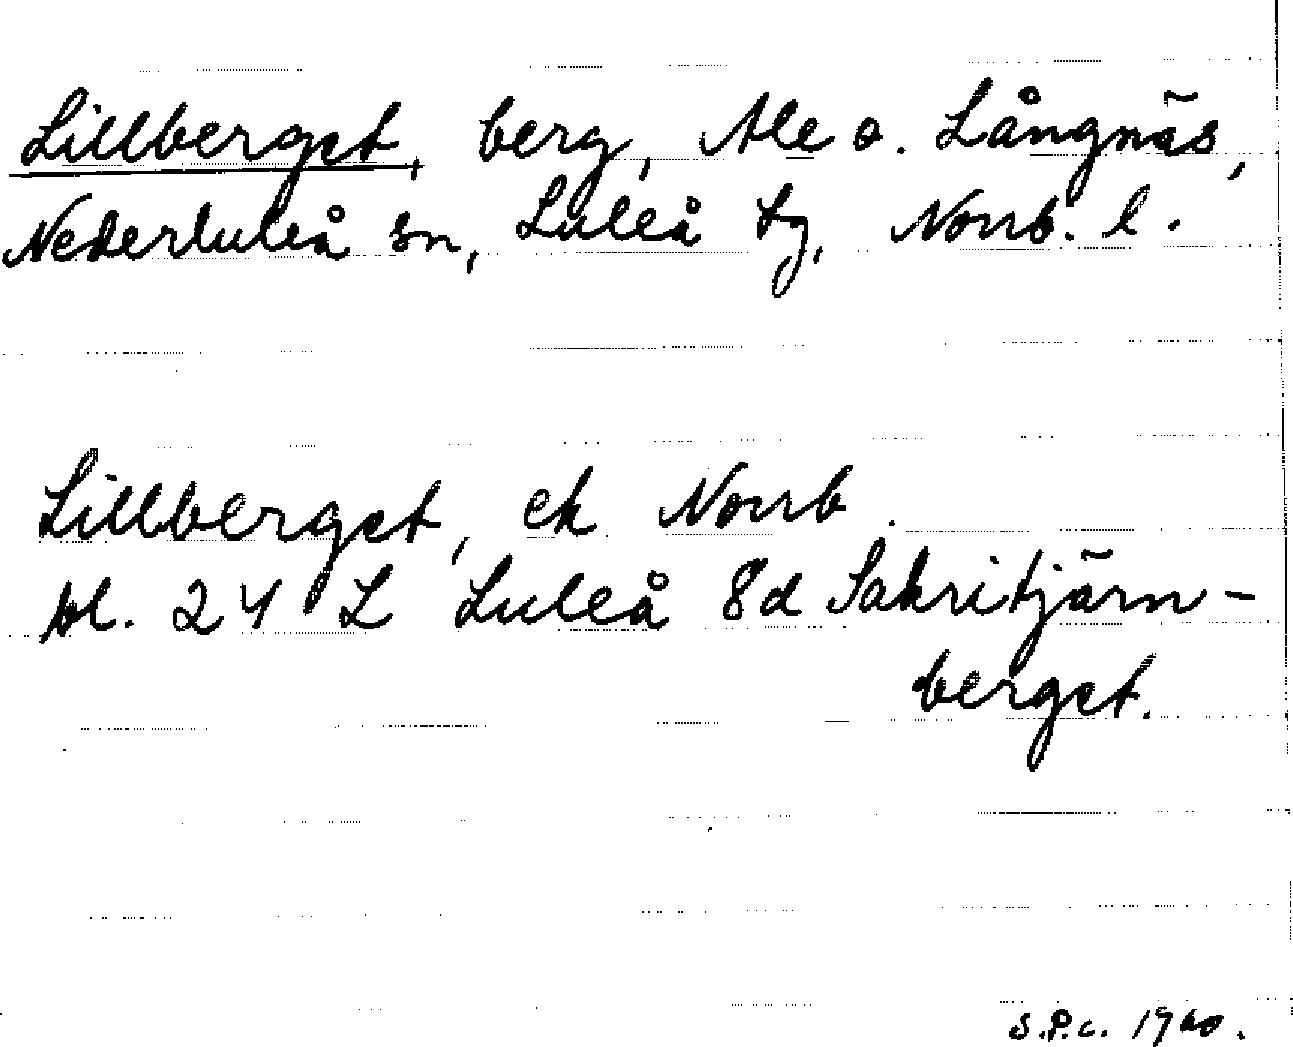 Lillberget, berg, Ale o. Långnäs,
Nederluleå sn, Luleå tg, Norrb. l.
Lillberget, ek Norrb.
bl. 24 L Luleå 8d Sakritjärn-
berget.
S.P.C. 1960.